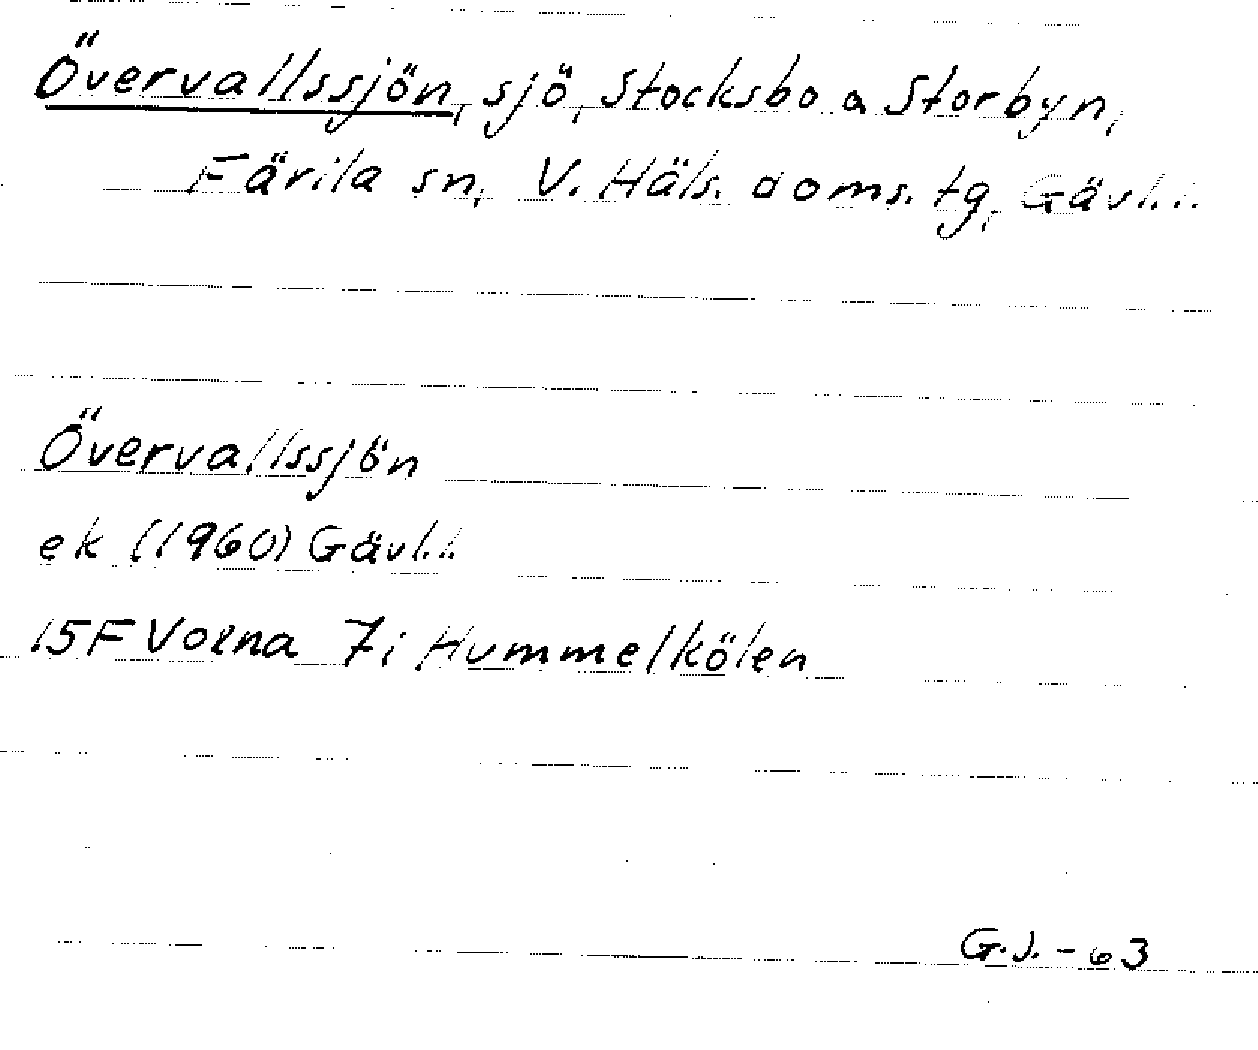 Övervallssjön, sjö, Stocksbo a Storbyn,
Färila sn, V. Häls. doms. tg, Gävl.l.
Övervallssjön
ek (1960) Gävl.l.
15F Voxna 7i Hummelkölen
G.J. - 63